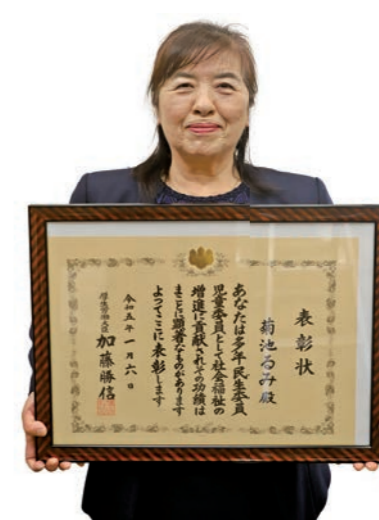 表彰状
菊池るみ殿
あなたは多年民生委員
児童委員として社会福祉の
増進に貢献されその功績は
まことに顕著なものがあります
よってここに表彰します
令和五年一月六日
厚生労働大臣 加藤勝信